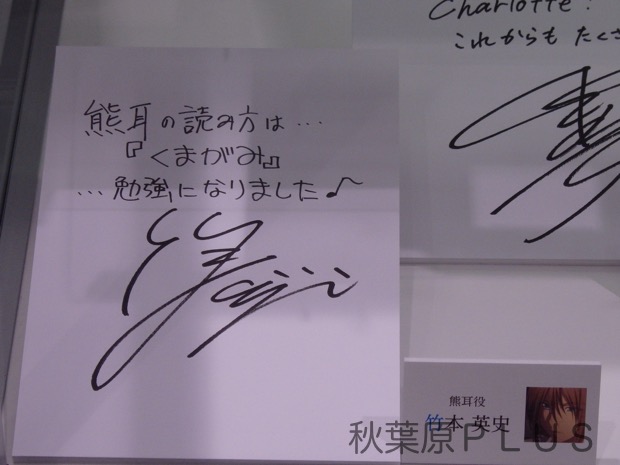 Charlotte!
これからも たくさ
熊耳の読み方は…
『くまがみ』
…勉強になりました♪
熊耳役
竹本 英史
秋葉原PLUS